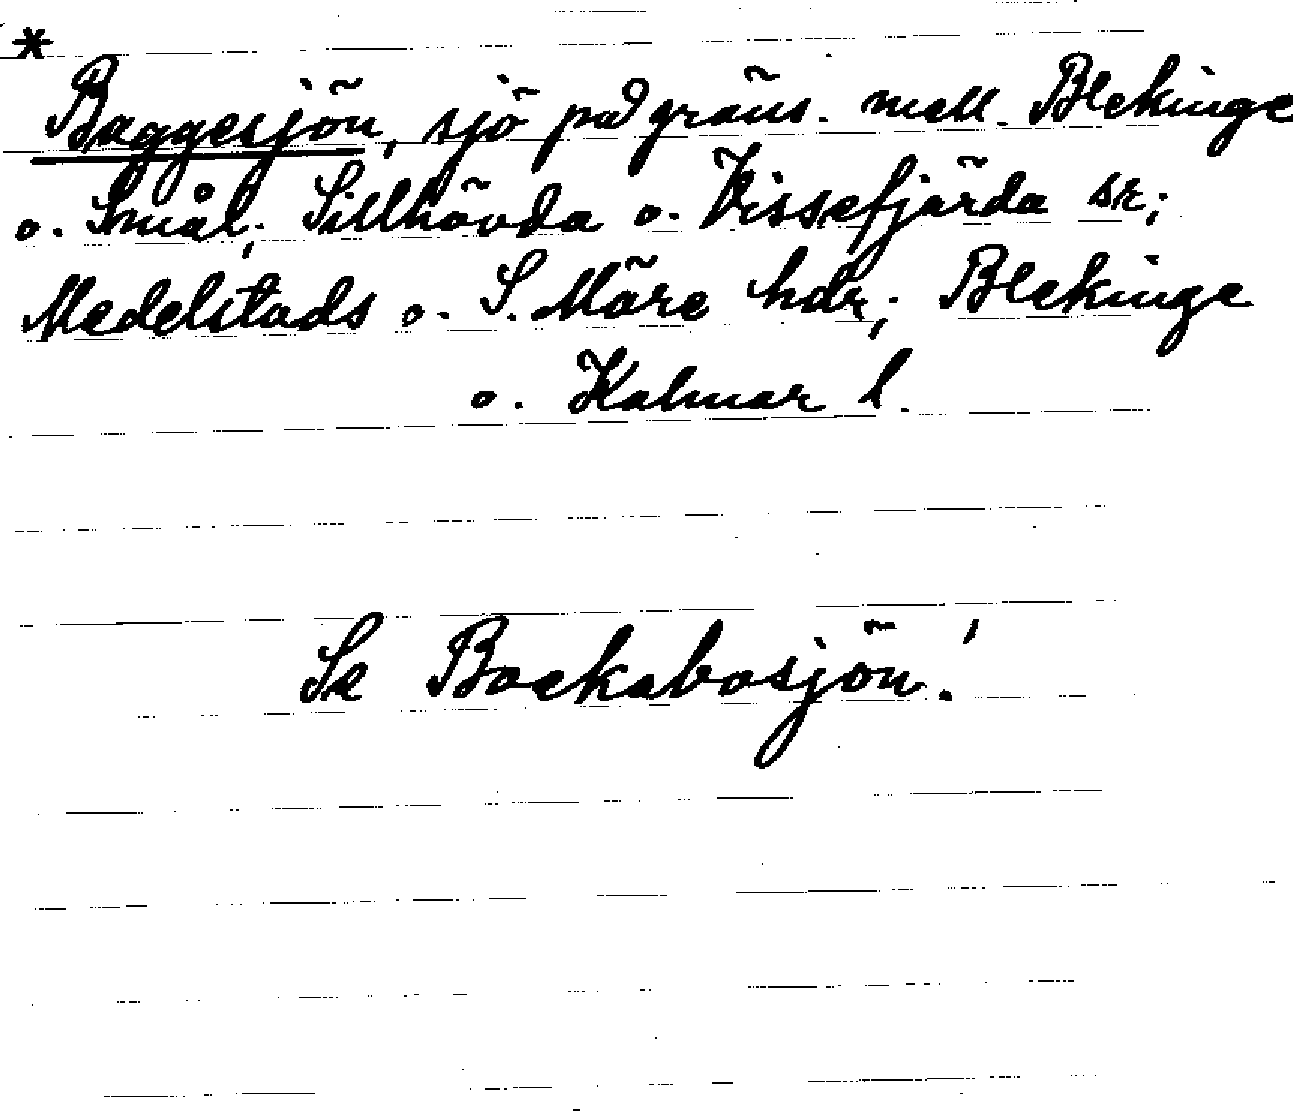 *
Baggesjön, sjö på gräns. mell. Blekinge
o. Smål; Sillhövda o. Vissefjärda sr;
Medelstads o. S. Möre hdr; Blekinge
o. Kalmar l.
Se Backabosjön!